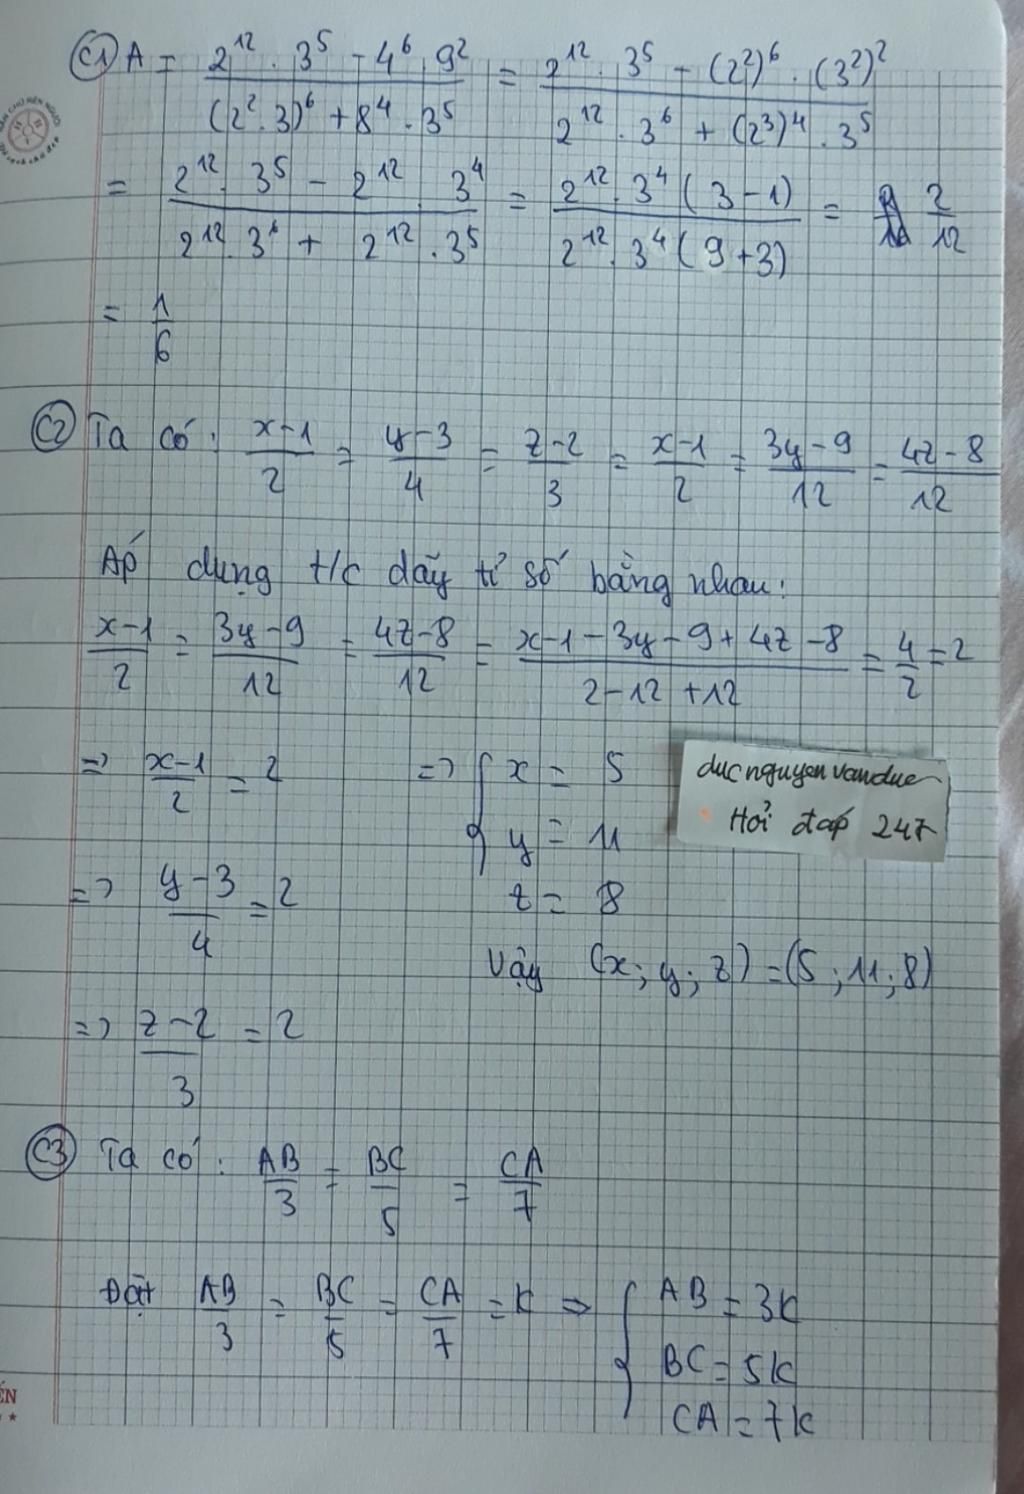 C1) A = (2^12 . 3^5 - 4^6 . 9^2) / ((2^2 . 3)^6 + 8^4 . 3^5) = (2^12 . 3^5 - (2^2)^6 . (3^2)^2) / (2^12 . 3^6 + (2^3)^4 . 3^5)
= (2^12 . 3^5 - 2^12 . 3^4) / (2^12 . 3^6 + 2^12 . 3^5) = (2^12 . 3^4 (3 - 1)) / (2^12 . 3^4 (9 + 3)) = 2/12
= 1/6
C2) Ta có: (x-1)/2 = (y-3)/4 = (z-2)/3 = (x-1)/2 = (3y-9)/12 = (4z-8)/12
Áp dụng t/c dãy tỉ số bằng nhau:
(x-1)/2 = (3y-9)/12 = (4z-8)/12 = (x-1-3y-9+4z-8)/(2-12+12) = 4/2 = 2
=> (x-1)/2 = 2 => { x = 5
y = 11
=> (y-3)/4 = 2
z = 8
Vậy (x; y; z) = (5; 11; 8)
=> (z-2)/3 = 2
ducnguyenvanduc
Hỏi đáp 247
C3) Ta có: AB/3 = BC/5 = CA/7
Đặt AB/3 = BC/5 = CA/7 = k => { AB = 3k
BC = 5k
CA = 7k